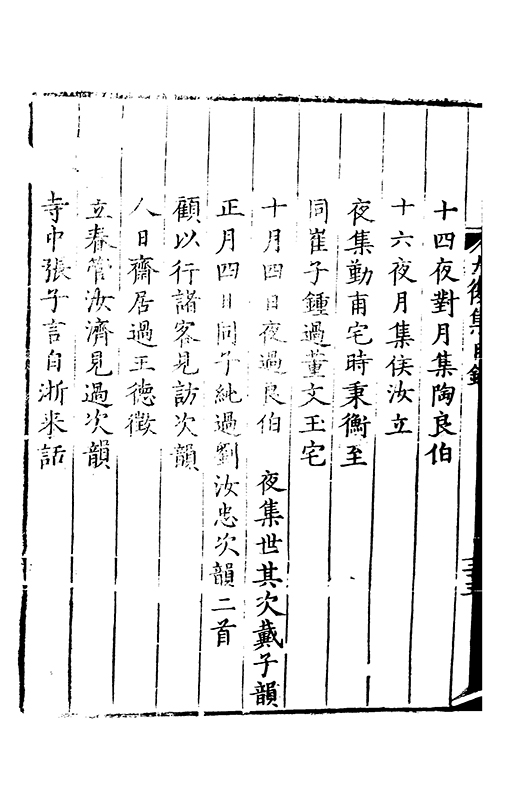 十四夜對月集陶良伯
十六夜月集侯汝立
夜集勤甫宅時秉衡至
同崔子鍾過董文玉宅
十月四日夜過良伯　夜集世其次戴子韻
正月四日同子純過劉汝忠次韻二首
顧以行諸客見訪次韻
人日齋居過王德徵
立春管汝濟見過次韻
寺中張子言自浙來話